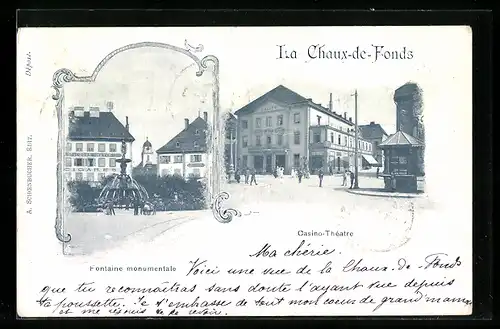 La Chaux-de-Fonds
Dépost.
A. Schoenbucher, Edit.
Fontaine monumentale
Casino-Théatre
Ma chérie.
Voici une vue de la Chaux-de-Fonds
que tu reconnaitras sans doute l'ayant vue depuis
ta poussette. Je t'embrasse de tout mon coeur de grand'maman
et me réjouis de te revoir.